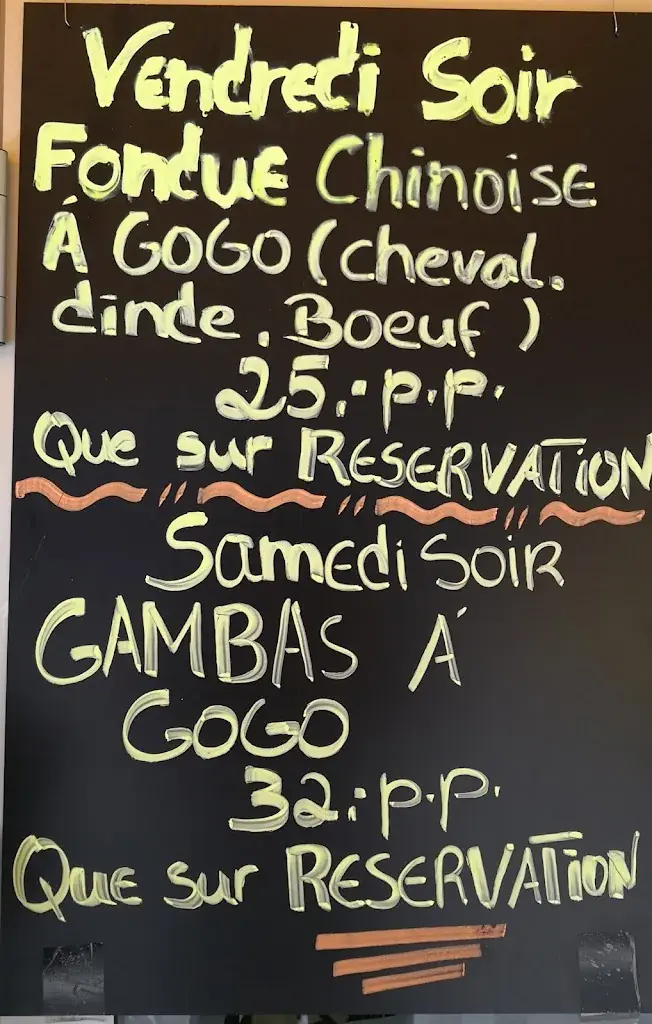 Vendredi Soir
Fondue Chinoise
Á GOGO (cheval.
dinde, Boeuf)
25.- p.p.
Que sur RESERVATION
Samedi SOIR
GAMBAS Á
GOGO
32.- p.p.
Que sur RESERVATION